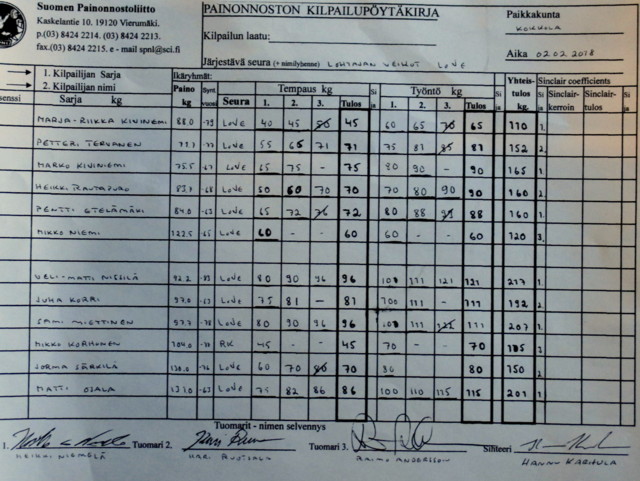 Suomen Painonnostoliitto
Kaskelantie 10. 19120 Vierumäki.
p.(03) 8424 2214. (03) 8424 2213.
fax.(03) 8424 2215. e - mail spnl@sci.fi
PAINONNOSTON KILPAILUPÖYTÄKIRJA
Kilpailun laatu:
Järjestävä seura (+ nimilyhenne) LOHTAJAN VEIKOT LOVE
Paikkakunta
KOKKOLA
Aika 02.02.2018
1. Kilpailijan Sarja
2. Kilpailijan nimi
Ikäryhmät:
Sarja kg Paino kg Synt. vuosi Seura Tempaus kg 1. 2. 3. Tulos Si ja Työntö kg 1. 2. 3. Tulos Si ja Yhteis- tulos kg. Si ja Sinclair coefficients Sinclair- kerroin Sinclair- tulos
MARJA-RIIKKA KIVINIEMI 88.0 -79 LOVE 40 45 50 45 60 65 70 65 110 1.
PETTERI TERVANEN -77 LOVE 55 65 71 71 75 81 85 81 152 2.
MARKO KIVINIEMI 75.5 -67 LOVE 65 75 - 75 80 90 - 90 165 1
HEIKKI RAUTAPURO 83.7 -68 LOVE 50 60 70 70 70 80 90 90 160 2
PENTTI ETELÄMÄKI 84.0 -63 LOVE 65 72 76 72 80 88 88 160 1
MIKKO NIEMI 122.5 -65 LOVE 60 - - 60 60 - - 60 120 3.
VELI-MATTI NISSILÄ 92.2 LOVE 80 90 96 96 111 121 121 217 1.
JUHA KORRI 97.0 -63 LOVE 75 81 - 81 100 111 - 111 192 2.
SAMI MIETTINEN 97.7 -78 LOVE 80 90 96 96 111 111 207 1.
MIKKO KORHONEN 104.0 RK 45 - - 45 70 - - 70
JORMA SÄRKILÄ 130.0 LOVE 60 70 80 70 80 150 2
MATTI OJALA LOVE 75 82 86 86 100 110 115 115 201 1
Tuomarit - nimen selvennys
1. Tuomari 2. Tuomari 3. Sihteeri
HEIKKI NIEMELÄ RAIMO ANDERSSON HANNU KARHULA